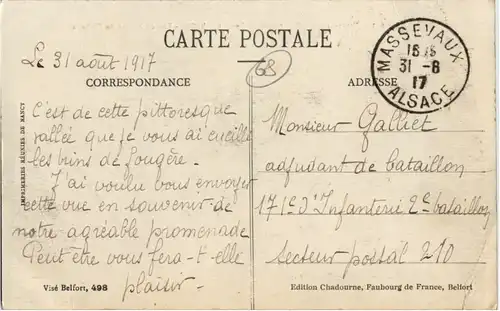 CARTE POSTALE
Le 31 août 1917
68
CORRESPONDANCE
ADRESSE
MASSEVAUX
31 - 8
17
ALSACE
C'est de cette pittoresque
vallée que je vous ai cueilli
les brins de fougère.
J'ai voulu vous envoyer
cette vue en souvenir de
notre agréable promenade
Peut être vous fera-t-elle
plaisir.
Monsieur Galliet
adjudant de bataillon
171e d'Infanterie 2e bataillon
Secteur postal 210
IMPRIMERIES RÉUNIES DE NANCY
Visé Belfort, 498
Edition Chadourne, Faubourg de France, Belfort